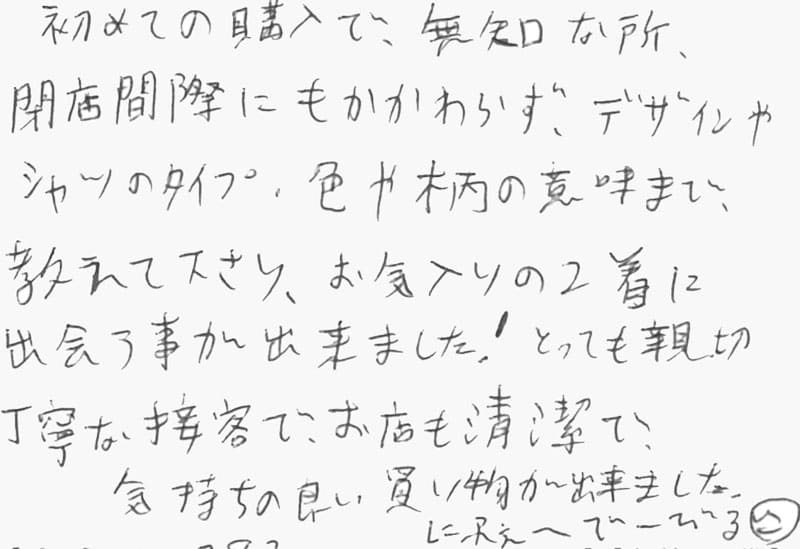 初めての購入で、無知な所、
閉店間際にもかかわらず、デザインや
シャツのタイプ、色や柄の意味まで、
教えて下さり、お気入りの2着に
出会う事が出来ました！とっても親切
丁寧な接客で、お店も清潔で、
気持ちの良い買い物が出来ました。